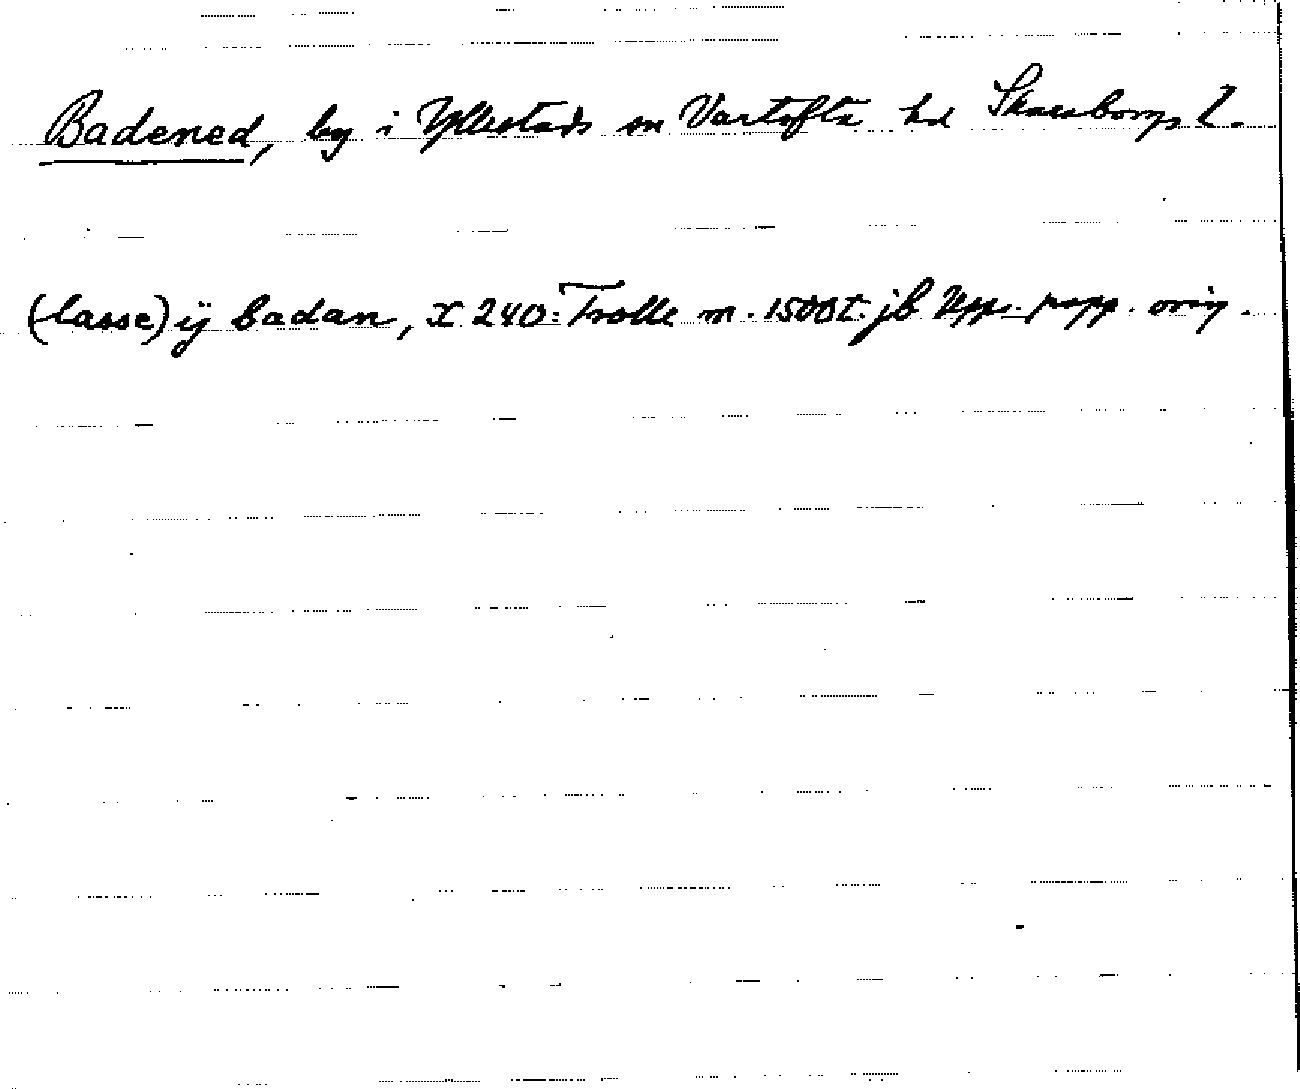 Badened, by i Yllestads sn Vartofta hd Skaraborgs l.
(lasse) ij badan, X 240: Trolle m. 1500t. jb Upps. papp. orig.